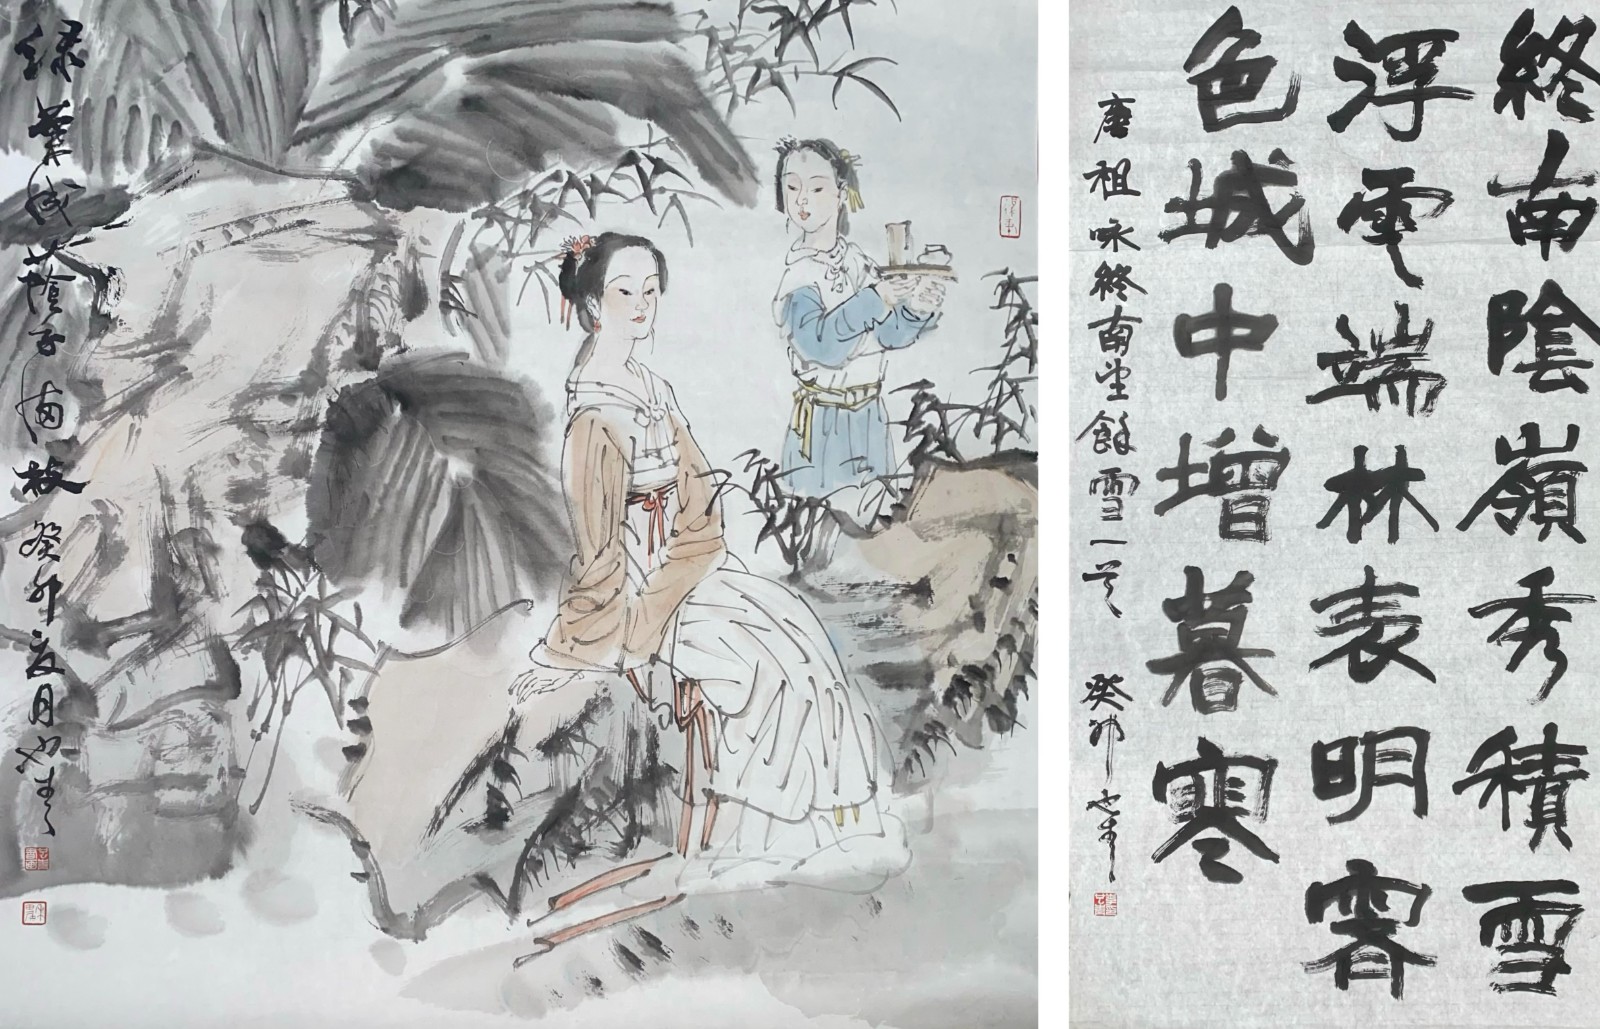 绿葉成蔭子滿枝 癸卯夏月
終南陰嶺秀積雪
浮雲端林表明霽
色城中增暮寒
唐祖咏終南望餘雪一首 癸卯